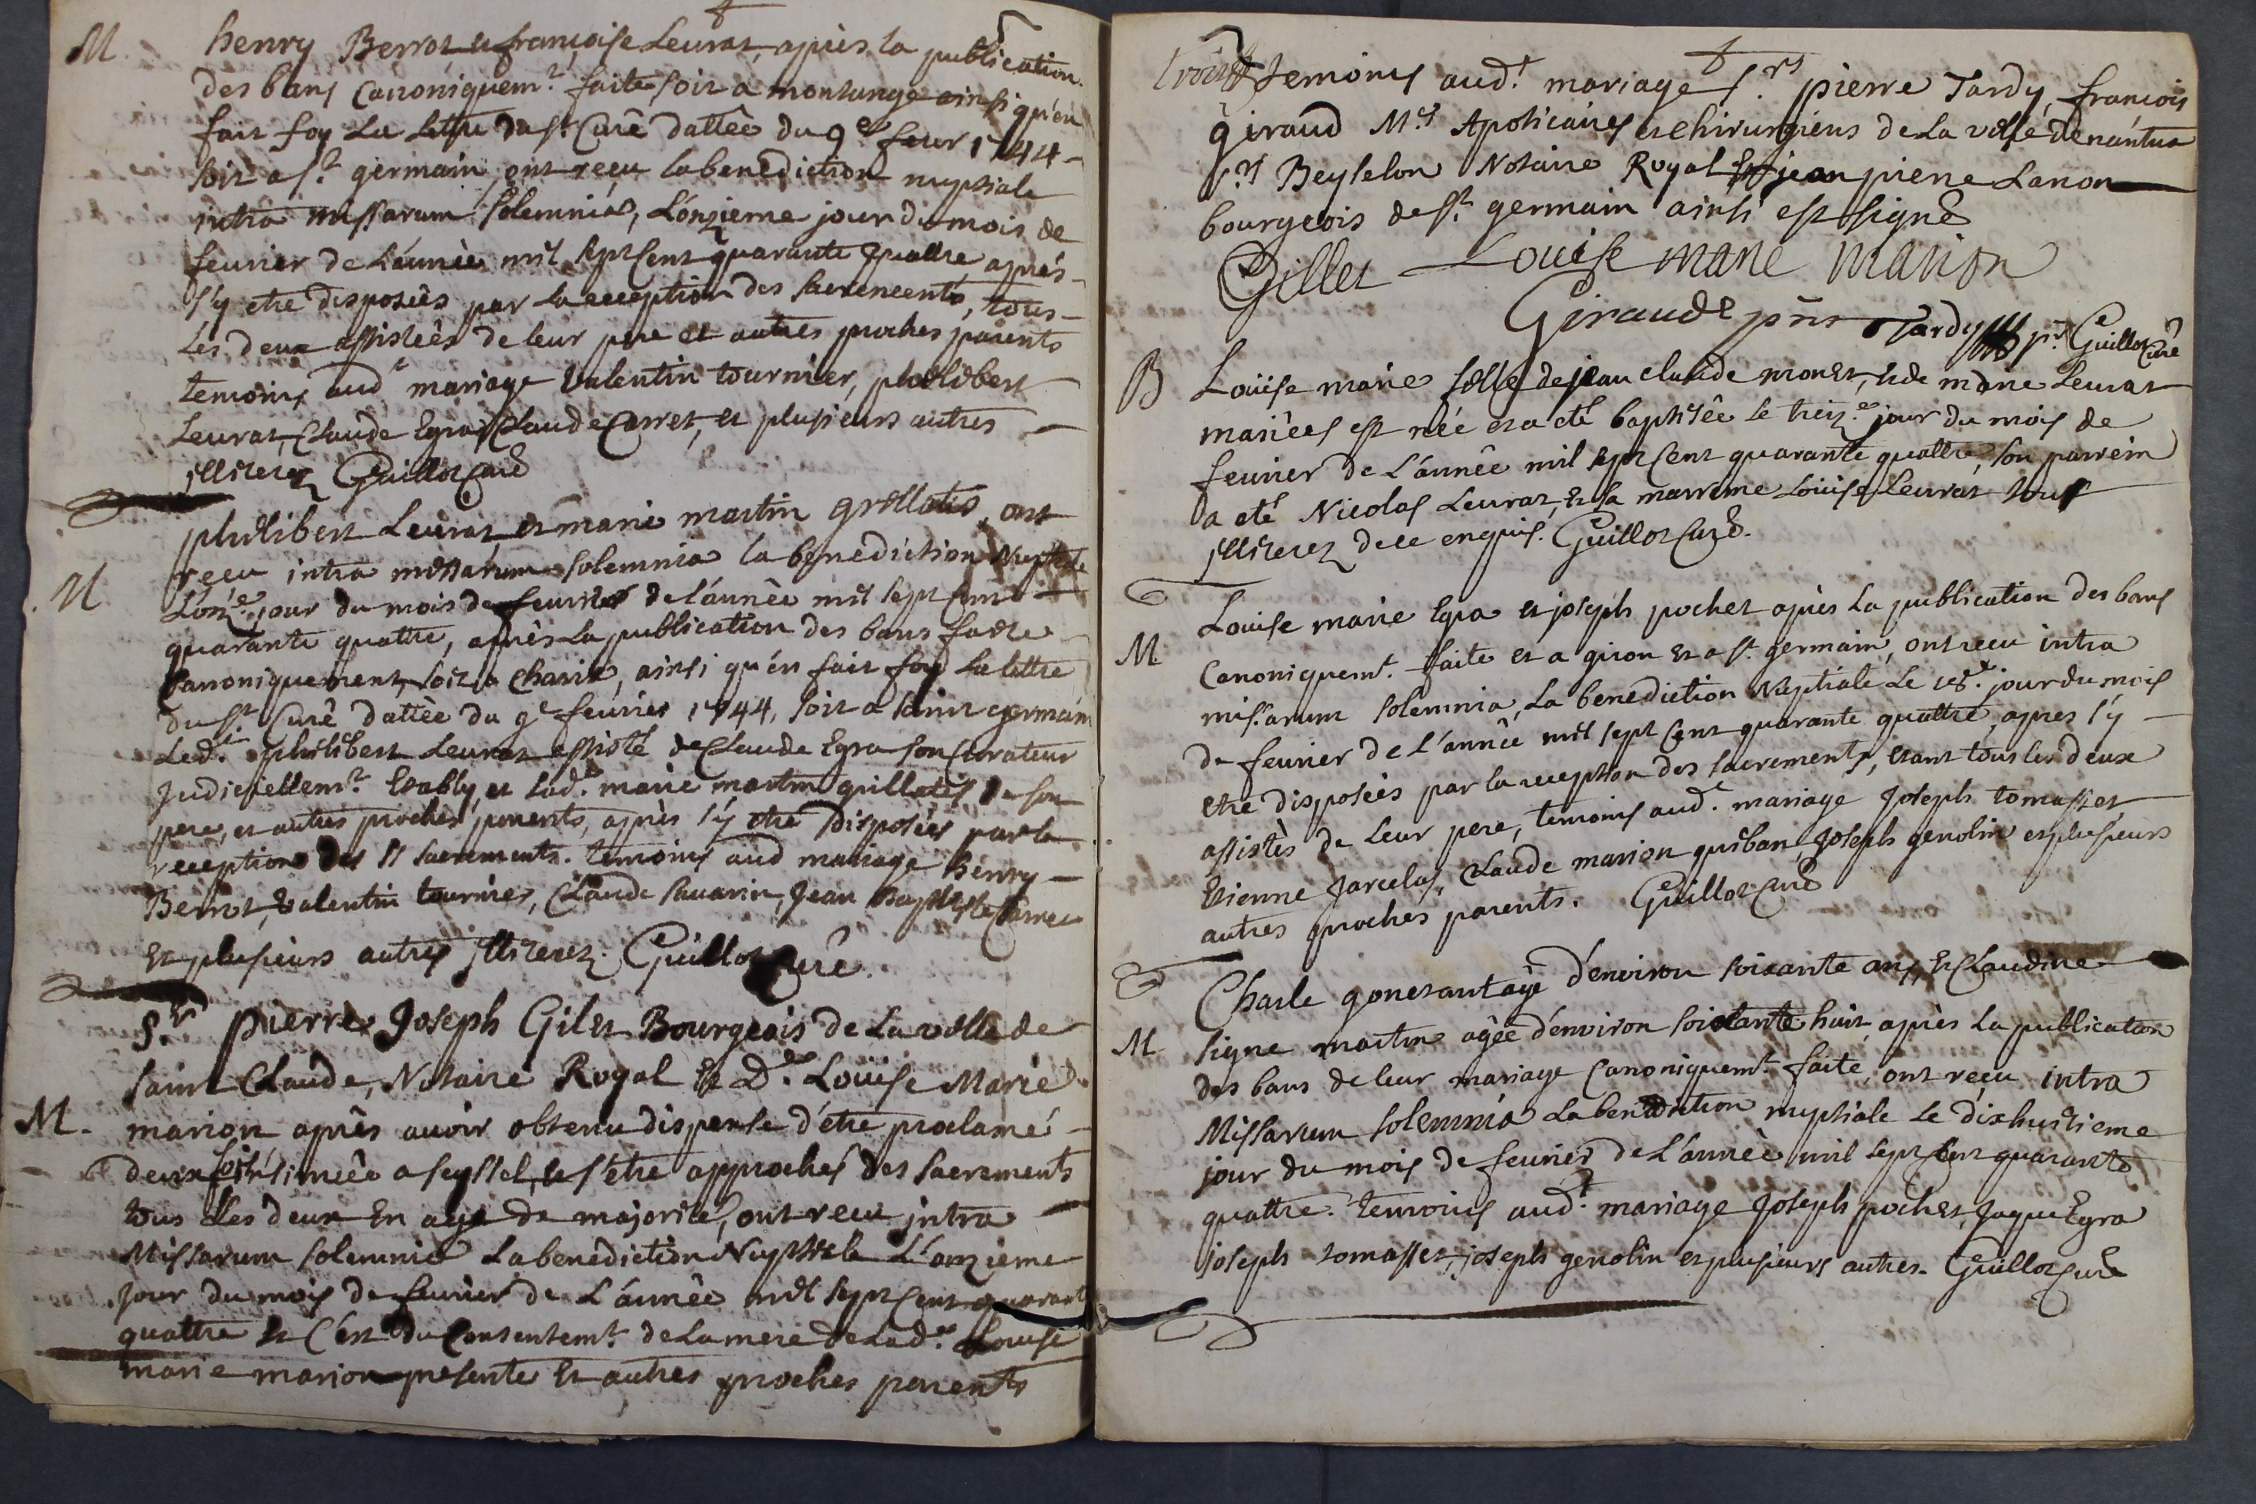 M henry Berrot et françoise Leurat, après la publication
des bans canoniquemt. faite soit a montange ainsi qu'en
fait foy la lettre du sr Curé dattée du 9e feur 1744
soit a st. germain, ont reçu la benediction nuptiale
intra missarum solemnia, L'onzieme jour du mois de
feurier de L'année mil sept cent quarante quattre après
s'y etre disposées par la reception des sacrements, tous
Les deux assistées de leur pere et autres proches parents
temoins audt mariage Valentin tournier, philibert
Leurat, Claude Egra Claude Carret, et plusieurs autres
illiterez Guillot Curé
philibert Leurat et marie martin grillatis, ont
M reçu intra missarum solemnia la benediction Nuptiale
L'onze. jour du mois de feurier de L'année mil sept cent
quarante quattre, après La publication des bans faite
canoniquement, soit a Charix, ainsi qu'en fait foy La lettre
du sr Curé dattée du 9e feurier 1744, soit a saint germain
Ledt. philibert Leurat assisté de Claude Egra son curateur
Judiciellemt. Etably, et Lad. marie martin grillatis de son
pere, et autres proches parents, après s'y etre disposées par la
reception des sts sacrements. temoins aud mariage henry
Berrot, Valentin tournier, Claude sauarin, Jean Baptiste Carret
Et plusieurs autres illiterez. Guillot Curé.
Sr. pierre Joseph Gilet Bourgeois de La ville de
saint Claude, Notaire Royal Et De. Louise Marie
M. marion après auoir obtenu dispense d'être proclamé
deux fois, insinuée a seyssel, et s'etre approchés des sacrements
tous Les deux En age de majorité, ont reçu intra
Missarum solemnia La benediction Nuptiale L'onzieme
jour du mois de feurier de L'année mil sept cent quarante
quattre Et c'est du Consentemt. de La mere de Lade. Louise
marie marion presente Et autres proches parents
temoins audt. mariage srs pierre Tardy, françois
giraud Mes Apoticaires et chirurgiens de La ville de nantua
srs Beysselon Notaire Royal Et jean pierre Lanon
bourgeois de st. germain ainsi est signé
Gillet Louise marie marion
Giraud pñt Tardy pt. Guillot Curé
B Loüise marie fille de jean claude monet, et de marie Leurat
mariées est née et a eté baptisée le treize. jour du mois de
feurier de L'année mil sept cent quarante quattre, son parrein
a eté Nicolas Leurat, Et sa marreine Louise Leurat tous
illiterez de ce enquis. Guillot Curé.
Louise marie Egra et joseph pochet après La publication des bans
M canoniquemt. faite et a giron Et a st. germain, ont reçu intra
missarum solemnia, La benediction Nuptiale Le 18e. jour du mois
de feurier de L'année mil sept cent quarante quattre, apres s'y
etre disposées par la reception des sacrements, Etant tous les deux
assistés de Leur pere, temoins audt. mariage Joseph tomasset
Etienne Jarcelas, Claude marion quiban, Joseph genolin et plusieurs
autres proches parents. Guillot Curé
Charle gonet ant âgé d'environ soixante ans, Et Claudine
M signe martin agée d'environ soixante huit, après La publication
des bans de leur mariage canoniquemt. faite, ont reçu intra
Missarum solemnia La benediction nuptiale Le dixhuitieme
jour du mois de feurier de L'année mil sept cent quarante
quattre. temoins audt. mariage Joseph pochet, Jaque Egra
joseph tomasset, joseph genolin et plusieurs autres. Guillot Curé